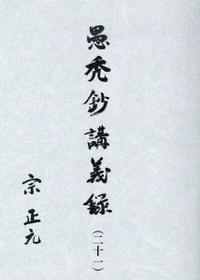 愚禿鈔講義録
(二十一)
宗正元